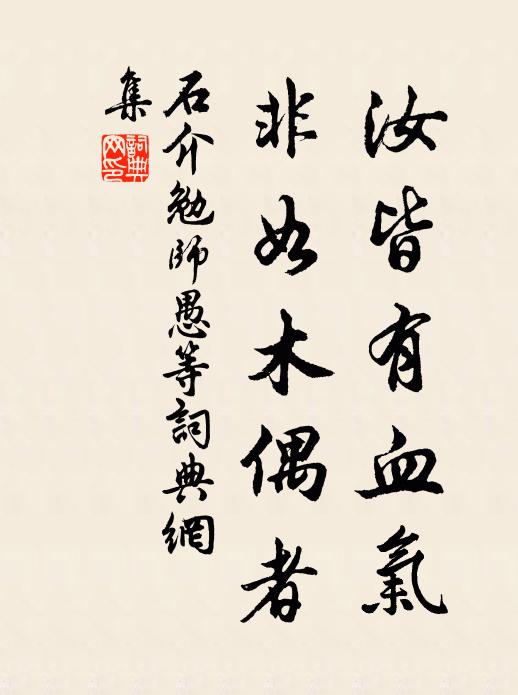 汝皆有血氣
非如木偶者
石介勉師愚等詞典網
集
詞典網印